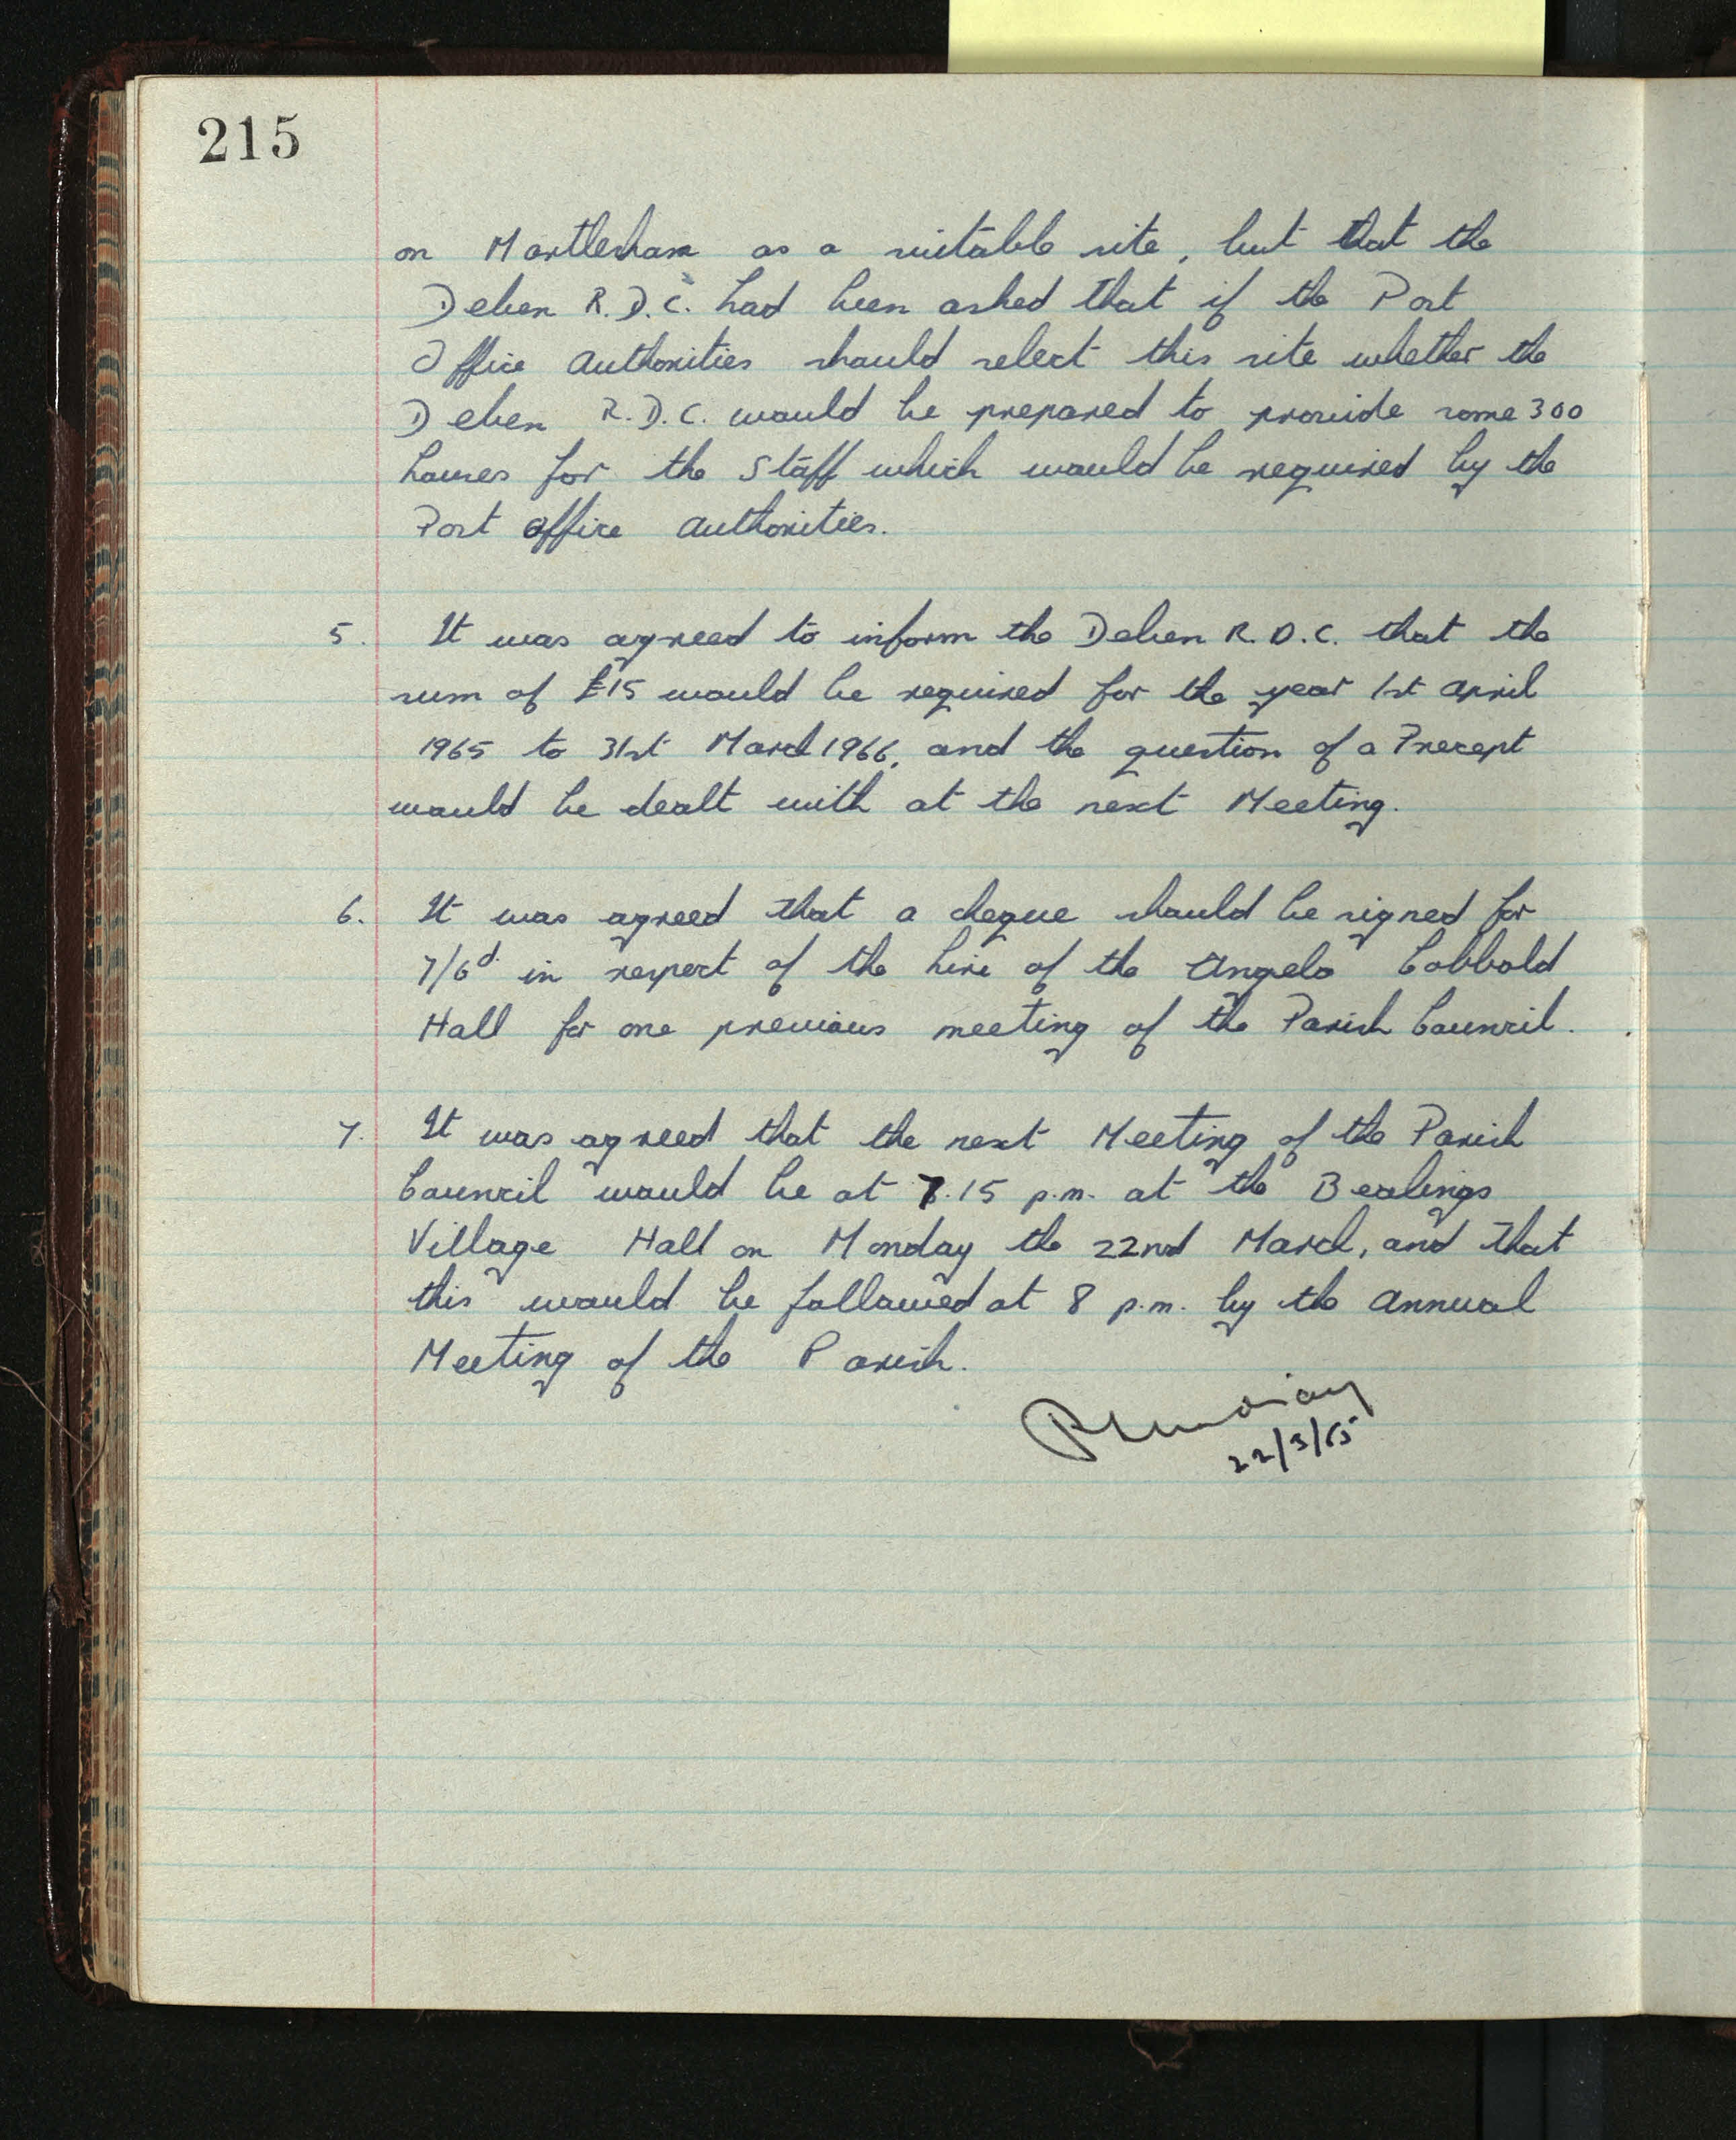 215
on Martlesham as a suitable site, but that the
Deben R.D.C. had been asked that if the Post
Office Authorities should select this site whether the
Deben R.D.C. would be prepared to provide some 300
houses for the Staff which would be required by the
Post Office Authorities.
5. It was agreed to inform the Deben R.D.C. that the
sum of £15 would be required for the year 1st April
1965 to 31st March 1966, and the question of a Precept
would be dealt with at the next Meeting.
6. It was agreed that a cheque should be signed for
7/6d. in respect of the hire of the Angela Cobbold
Hall for one previous meeting of the Parish Council.
7. It was agreed that the next Meeting of the Parish
Council would be at 7.15 p.m. at the Bealings
Village Hall on Monday the 22nd March, and that
this would be followed at 8 p.m. by the Annual
Meeting of the Parish.
22/3/65